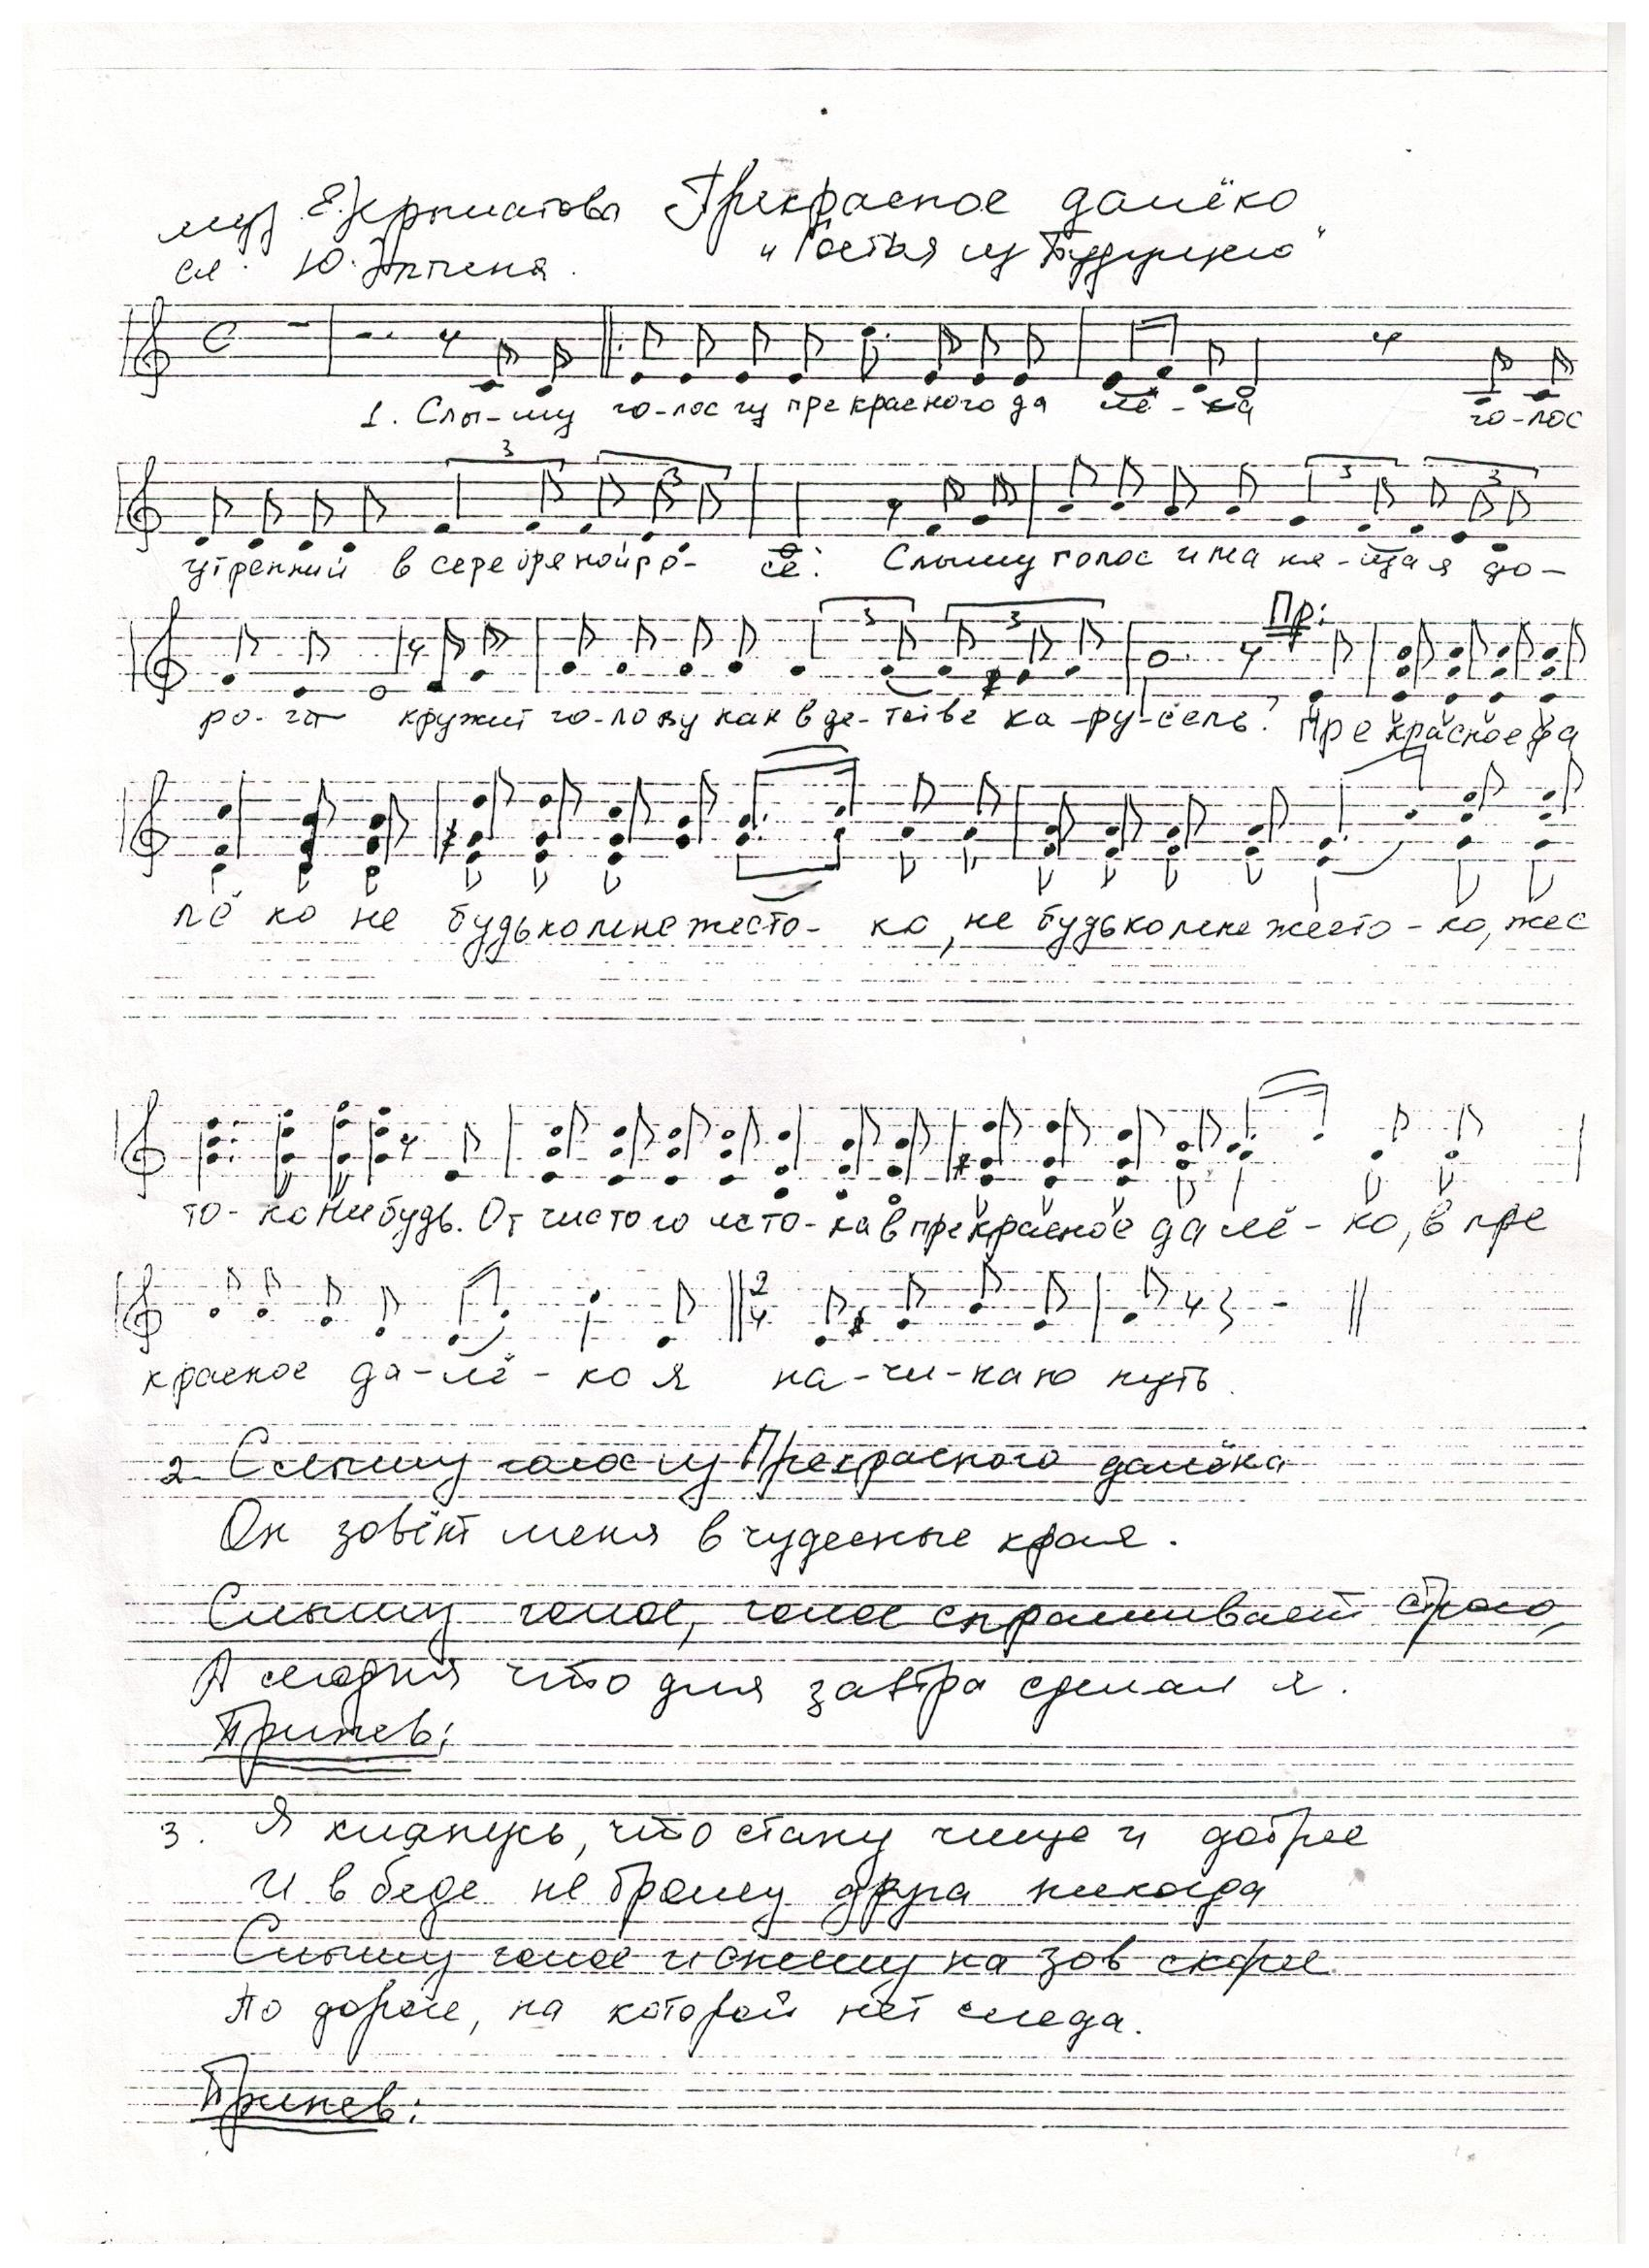 муз Е.Крылатова Прекрасное далёко
сл. Ю.Энтина. "Гостья из Будущего"
1. Слы-шу го-лос из прекрасного да лё-ка го-лос
3 3
утренний в серебряной ро- се. Слышу голос и ма ня-щая до-
3 3
Пр:
ро-га кружит го-лову как в де-тстве ка-ру-сель. Пре красное да
лё ко не будь ко мне жесто- ко, не будь ко мне жесто-ко, жес
то- ко не будь. От чистого исто-ка в прекрасное да лё-ко, в пре
2 4
красное да-лё-ко я на-чи-наю путь.
2. Слышу голос из Прекрасного далёка
Он зовёт меня в чудесные края.
Слышу голос, голос спрашивает строго,
А сегодня что для завтра сделал я.
Припев:
3. Я клянусь, что стану чище и добрее
И в беде не брошу друга никогда
Слышу голос и спешу на зов скорее
По дороге, на которой нет следа.
Припев: